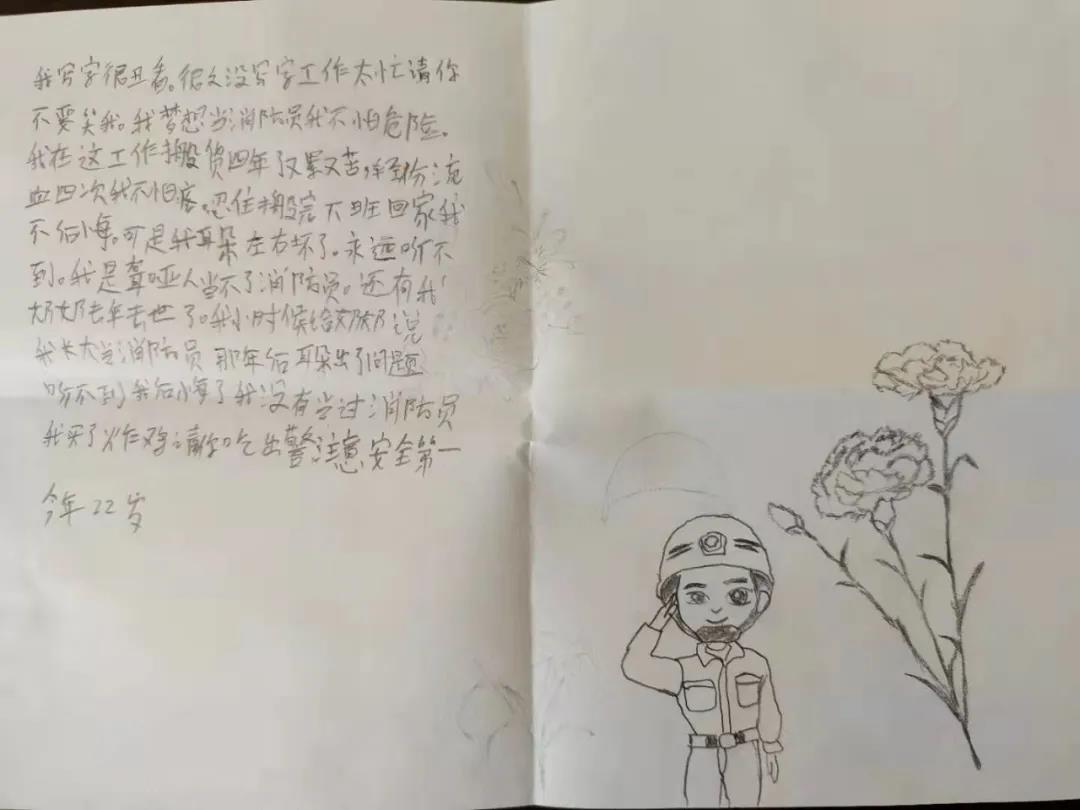 我写字很丑看。很久没写字工作太忙请你
不要笑我。我梦想当消防员我不怕危险。
我在这工作搬货四年了又累又苦，受伤流
血四次我不怕疼。忍住搬完下班回家我
不后悔。可是我耳朵左右坏了。永远听不
到。我是聋哑人当不了消防员。还有我
奶奶去年去世了。我小时候给奶奶说
我长大当消防员 那年后耳朵出了问题
听不到我后悔了我没有当过消防员
我买了炸鸡请你吃出警注意安全第一
今年22岁